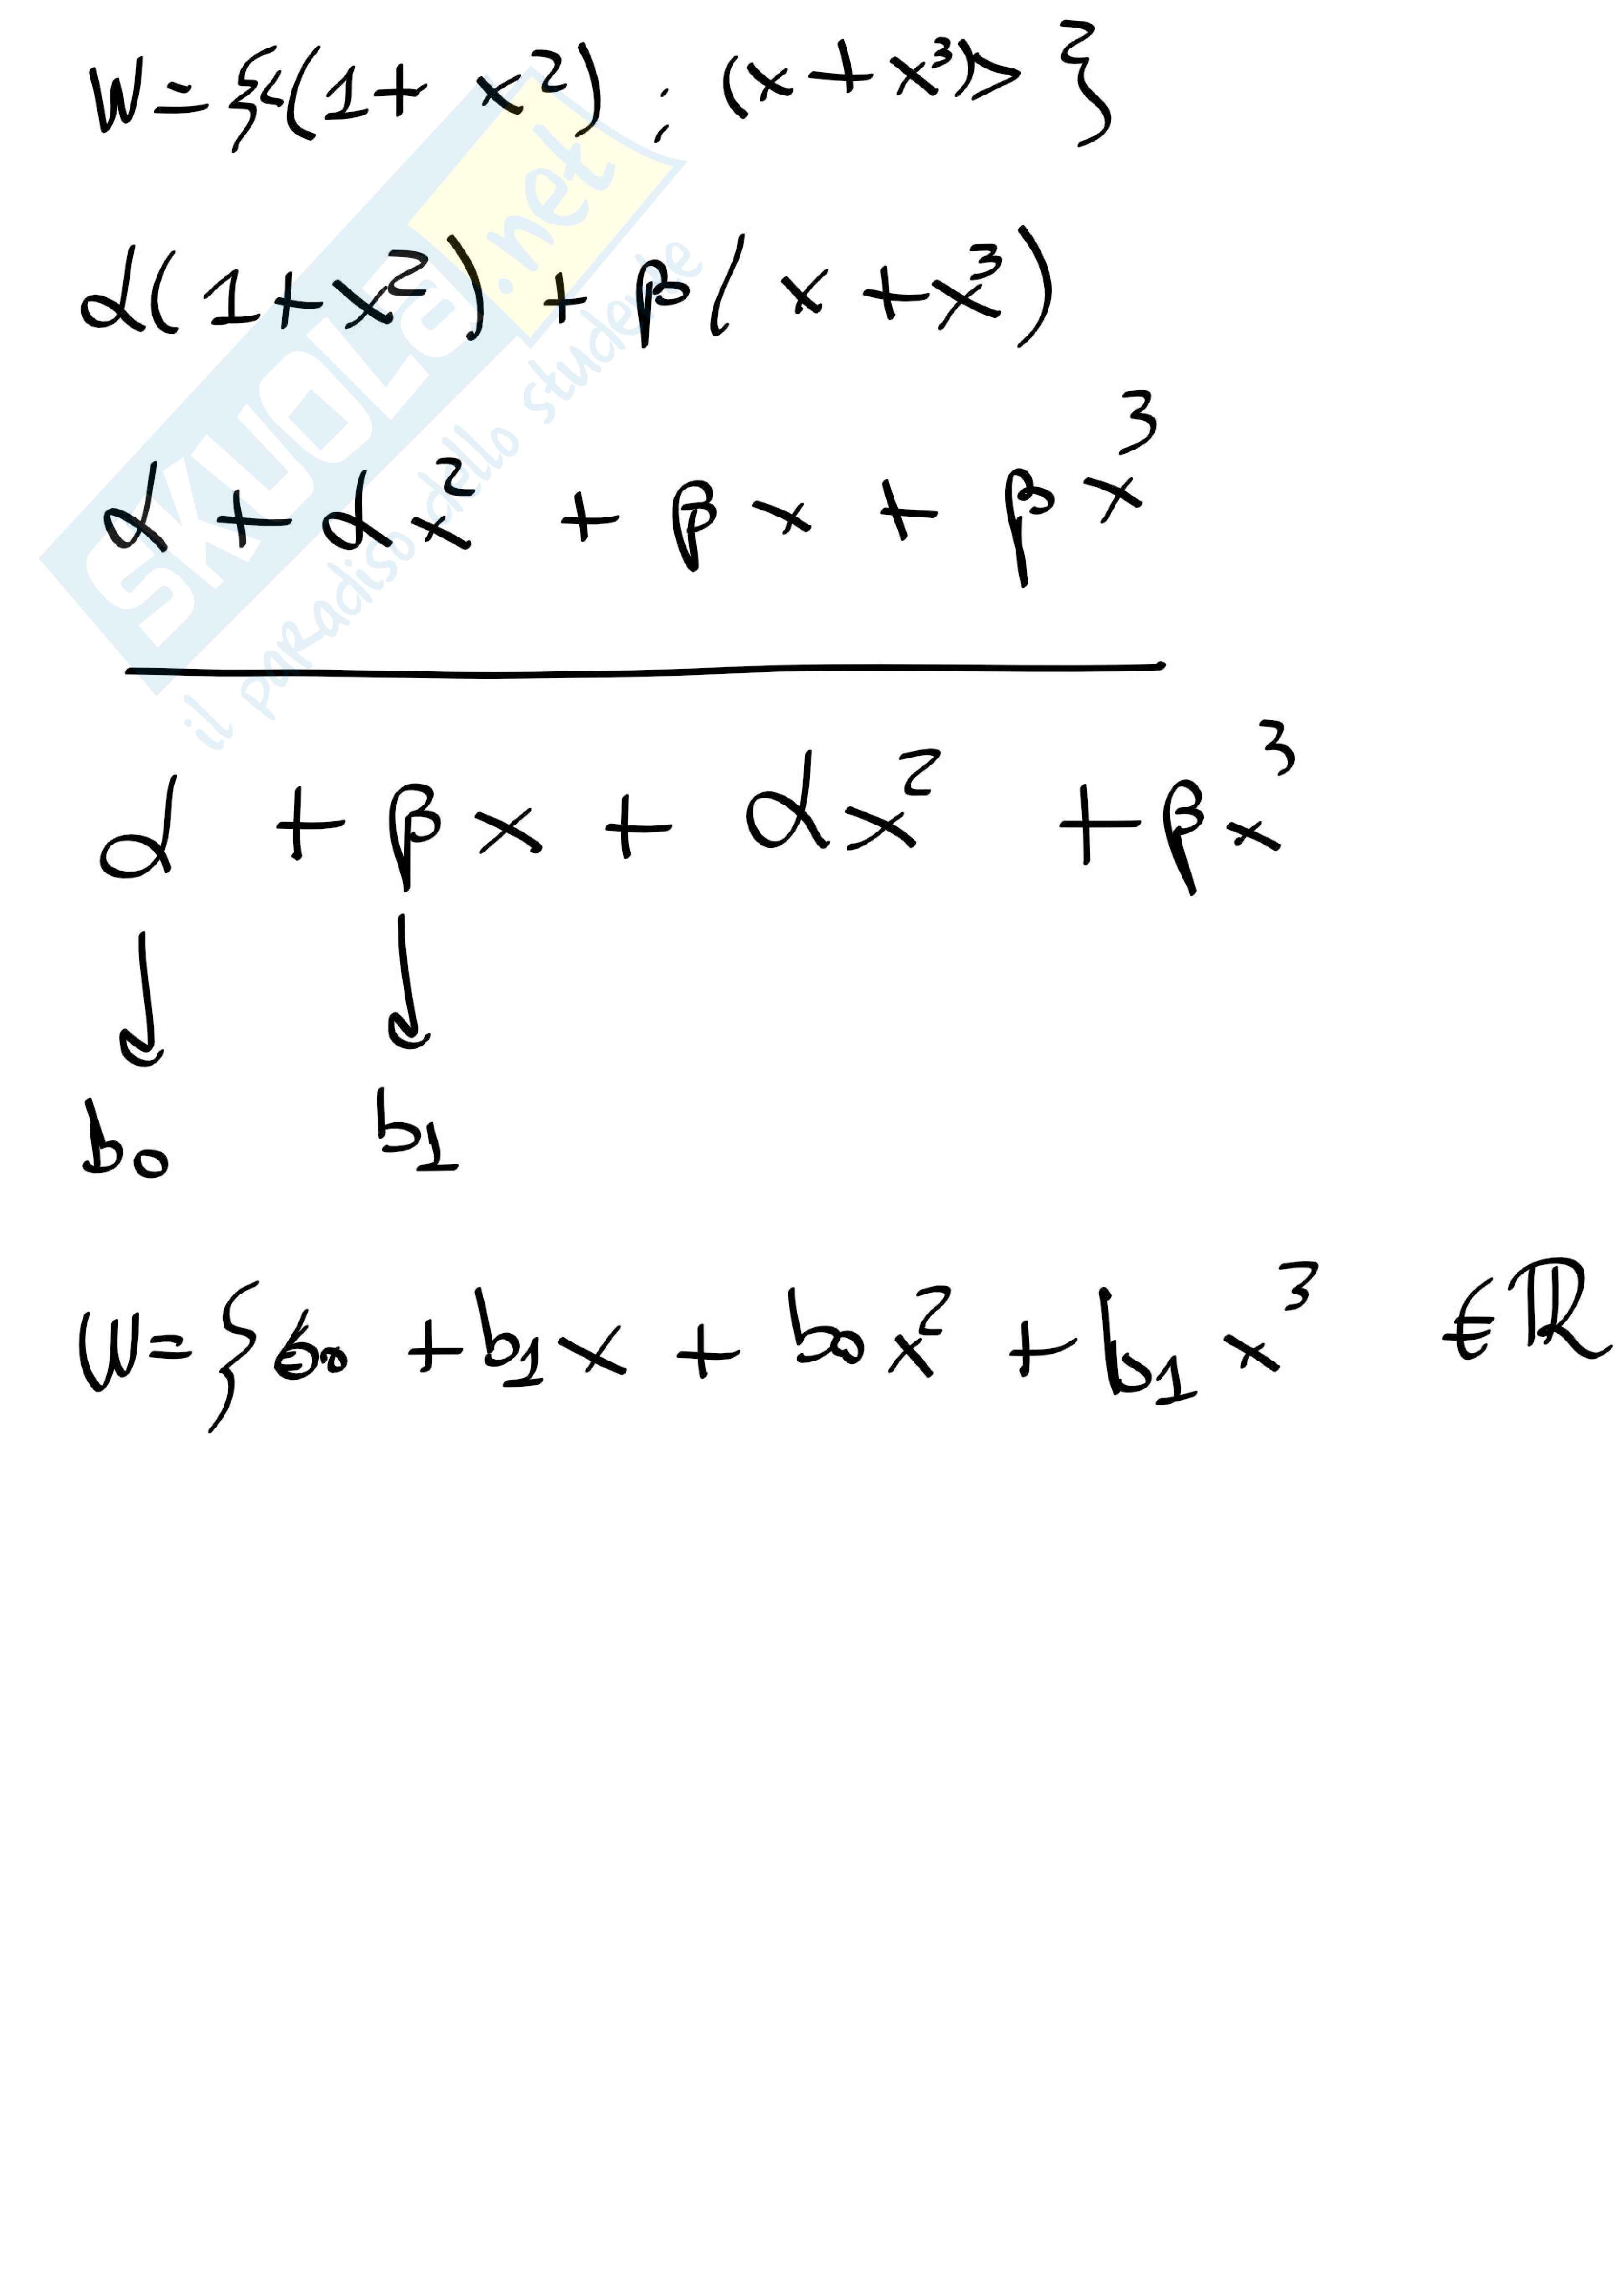 W = {<(1 + x²) ; (x + x³)> }
α(1 + x²) + β(x + x³)
α + αx² + βx + βx³
α + βx + αx² + βx³
b₀ b₁
W = { b₀ + b₁x + b₀x² + b₁x³ ∈ ℝ
SKUOLA.net
il paradiso dello studente